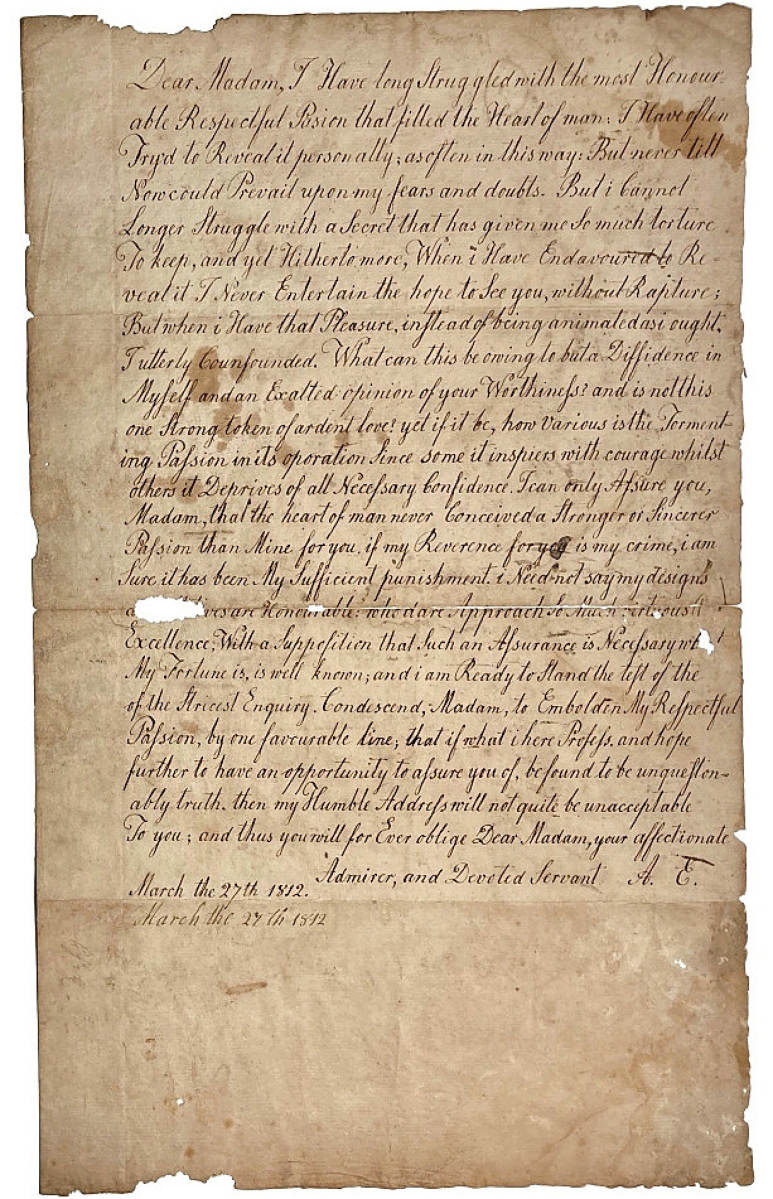 Dear Madam, I Have long Struggled with the most Honour-
able Respectful Pasion that filled the Heart of man: I Have often
Try'd to Reveal it personally; as often in this way: But never till
Now could Prevail upon my fears and doubts. But i Cannot
Longer Struggle with a Secret that has given me So much torture
To keep, and yet Hitherto more, When i Have Endavoured to Re-
veal it I Never Entertain the hope to See you, without Rapture;
But when i Have that Pleasure, instead of being animated as i ought,
I utterly Counfounded. What can this be owing to but a Diffidence in
Myself and an Exalted opinion of your Worthiness? and is not this
one Strong token of ardent love? yet if it be, how Various is the Torment-
ing Passion in its oporation Since some it inspiers with courage whilst
others it Deprives of all Necessary Confidence. I can only Assure you,
Madam, that the heart of man never Conceived a Stronger or Sincerer
Passion than Mine for you. if my Reverence for you is my crime, i am
Sure it has been My Sufficient punishment. i Need not say my designs
are Honourable: who dare Approach So Much virtuous
Excellence, With a Supposition that Such an Assurance is Necessary
My Fortune is, is well known; and i am Ready to Stand the test of the
of the Stricest Enquiry. Condescend, Madam, to Embolden My Respectful
Passion, by one favourable line; that if what i here Profess, and hope
further to have an opportunity to assure you of, be found to be unquestion-
ably truth. then my Humble Address will not quite be unacceptable
To you; and thus you will for Ever oblige Dear Madam, your affectionate
Admirer, and Devoted Servant A. E.
March the 27th 1812.
March the 27th 1812